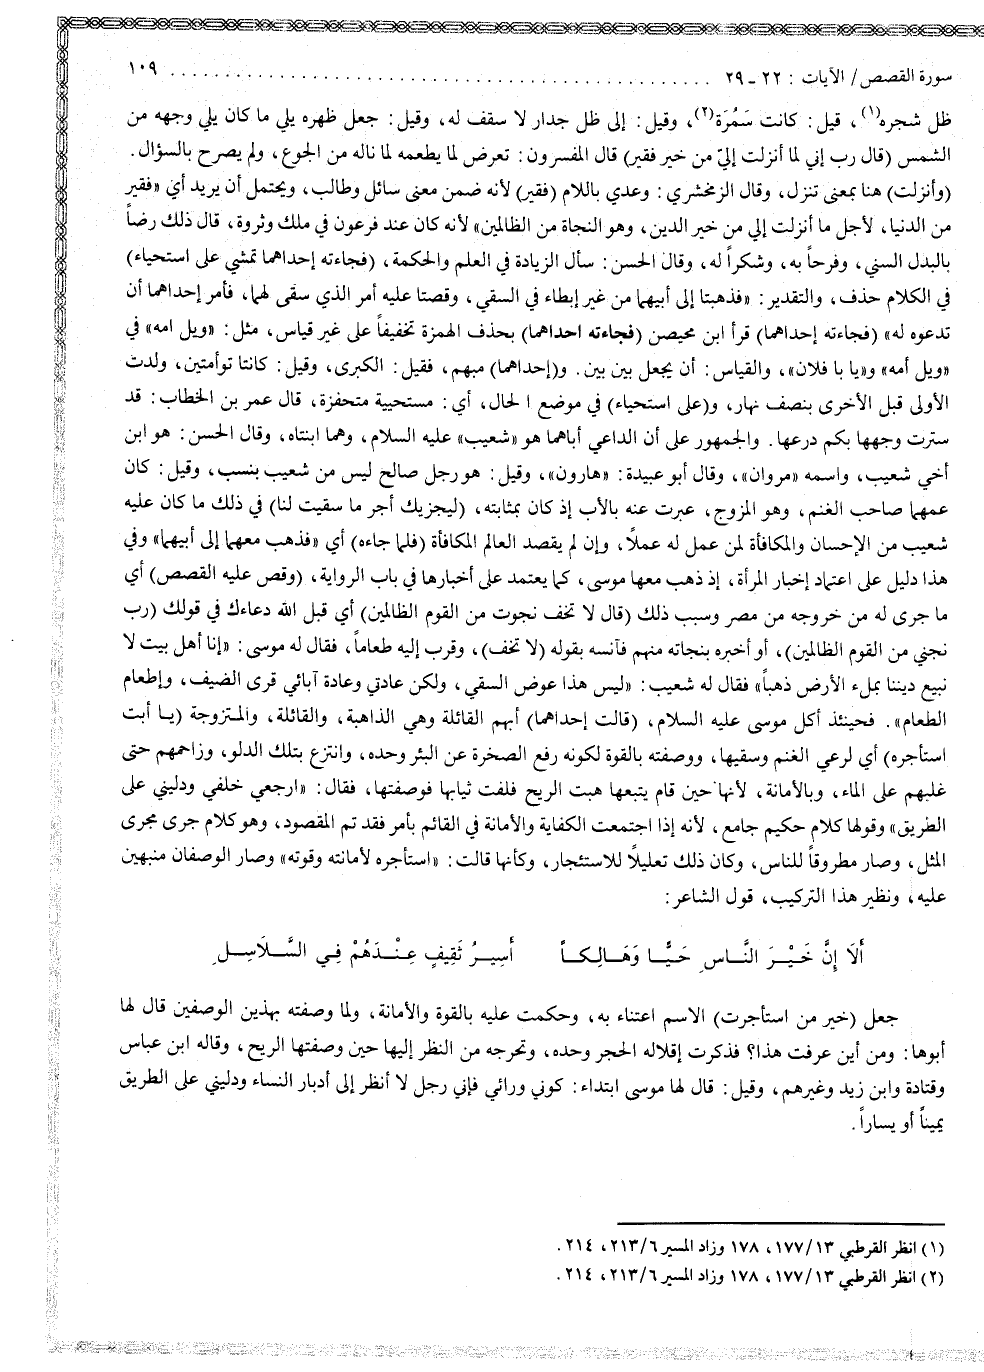 سورة القصص/ الآيات : ٢٢ ـ ٢٩ ........................................ ١٠٩
ظل شجره(١)، قيل: كانت سَمُرَة(٢)، وقيل: إلى ظل جدار لا سقف له، وقيل: جعل ظهره يلي ما كان يلي وجهه من
الشمس (قال رب إني لما أنزلت إليّ من خير فقير) قال المفسرون: تعرض لما يطعمه لما ناله من الجوع، ولم يصرح بالسؤال.
(وأنزلت) هنا بمعنى تنزل، وقال الزمخشري: وعدي باللام (فقير) لأنه ضمن معنى سائل وطالب، ويحتمل أن يريد أي «فقير
من الدنيا، لأجل ما أنزلت إلي من خير الدين، وهو النجاة من الظالمين» لأنه كان عند فرعون في ملك وثروة، قال ذلك رضاً
بالبدل السني، وفرحاً به، وشكراً له، وقال الحسن: سأل الزيادة في العلم والحكمة، (فجاءته إحداهما تمشي على استحياء)
في الكلام حذف، والتقدير: «فذهبتا إلى أبيهما من غير إبطاء في السقي، وقصتا عليه أمر الذي سقى لهما، فأمر إحداهما أن
تدعوه له» (فجاءته إحداهما) قرأ ابن محيصن (فجاءته احداهما) بحذف الهمزة تخفيفاً على غير قياس، مثل: «ويل امه» في
«ويل أمه» و«يا با فلان»، والقياس: أن يجعل بين بين. و(إحداهما) مبهم، فقيل: الكبرى، وقيل: كانتا توأمتين، ولدت
الأولى قبل الأخرى بنصف نهار، و(على استحياء) في موضع الحال، أي: مستحيية متحفزة، قال عمر بن الخطاب: قد
سترت وجهها بكم درعها. والجمهور على أن الداعي أباهما هو «شعيب» عليه السلام، وهما ابنتاه، وقال الحسن: هو ابن
أخي شعيب، واسمه «مروان»، وقال أبو عبيدة: «هارون»، وقيل: هو رجل صالح ليس من شعيب بنسب، وقيل: كان
عمهما صاحب الغنم، وهو المزوج، عبرت عنه بالأب إذ كان بمثابته، (ليجزيك أجر ما سقيت لنا) في ذلك ما كان عليه
شعيب من الإحسان والمكافأة لمن عمل له عملاً، وإن لم يقصد العالم المكافأة (فلما جاءه) أي «فذهب معهما إلى أبيهما» وفي
هذا دليل على اعتماد إخبار المرأة، إذ ذهب معها موسى، كما يعتمد على أخبارها في باب الرواية، (وقص عليه القصص) أي
ما جرى له من خروجه من مصر وسبب ذلك (قال لا تخف نجوت من القوم الظالمين) أي قبل الله دعاءك في قولك (رب
نجني من القوم الظالمين)، أو أخبره بنجاته منهم فآنسه بقوله (لا تخف)، وقرب إليه طعاماً، فقال له موسى: «إنا أهل بيت لا
نبيع ديننا بملء الأرض ذهباً» فقال له شعيب: «ليس هذا عوض السقي، ولكن عادتي وعادة آبائي قرى الضيف، وإطعام
الطعام». فحينئذ أكل موسى عليه السلام، (قالت إحداهما) أبهم القائلة وهي الذاهبة، والقائلة، والمتزوجة (يا أبت
استأجره) أي لرعي الغنم وسقيها، ووصفته بالقوة لكونه رفع الصخرة عن البئر وحده، وانتزع بتلك الدلو، وزاحمهم حتى
غلبهم على الماء، وبالأمانة، لأنها حين قام يتبعها هبت الريح فلفت ثيابها فوصفتها، فقال: «ارجعي خلفي ودليني على
الطريق» وقولها كلام حكيم جامع، لأنه إذا اجتمعت الكفاية والأمانة في القائم بأمر فقد تم المقصود، وهو كلام جرى مجرى
المثل، وصار مطروقاً للناس، وكان ذلك تعليلاً للاستئجار، وكأنها قالت: «استأجره لأمانته وقوته» وصار الوصفان منبهين
عليه، ونظير هذا التركيب، قول الشاعر:
أَلَا إِنَّ خَيْرَ النَّاسِ حَيًّا وَهَالِكاً أَسِيرُ ثَقِيفٍ عِنْدَهُمْ فِي السَّلَاسِلِ
جعل (خير من استأجرت) الاسم اعتناء به، وحكمت عليه بالقوة والأمانة، ولما وصفته بهذين الوصفين قال لها
أبوها: ومن أين عرفت هذا؟ فذكرت إقلاله الحجر وحده، وتحرجه من النظر إليها حين وصفتها الريح، وقاله ابن عباس
وقتادة وابن زيد وغيرهم، وقيل: قال لها موسى ابتداء: كوني ورائي فإني رجل لا أنظر إلى أدبار النساء ودليني على الطريق
يميناً أو يساراً.
(١) انظر القرطبي ١٧٧/١٣، ١٧٨ وزاد المسير ٢١٣/٦، ٢١٤.
(٢) انظر القرطبي ١٧٧/١٣، ١٧٨ وزاد المسير ٢١٣/٦، ٢١٤.